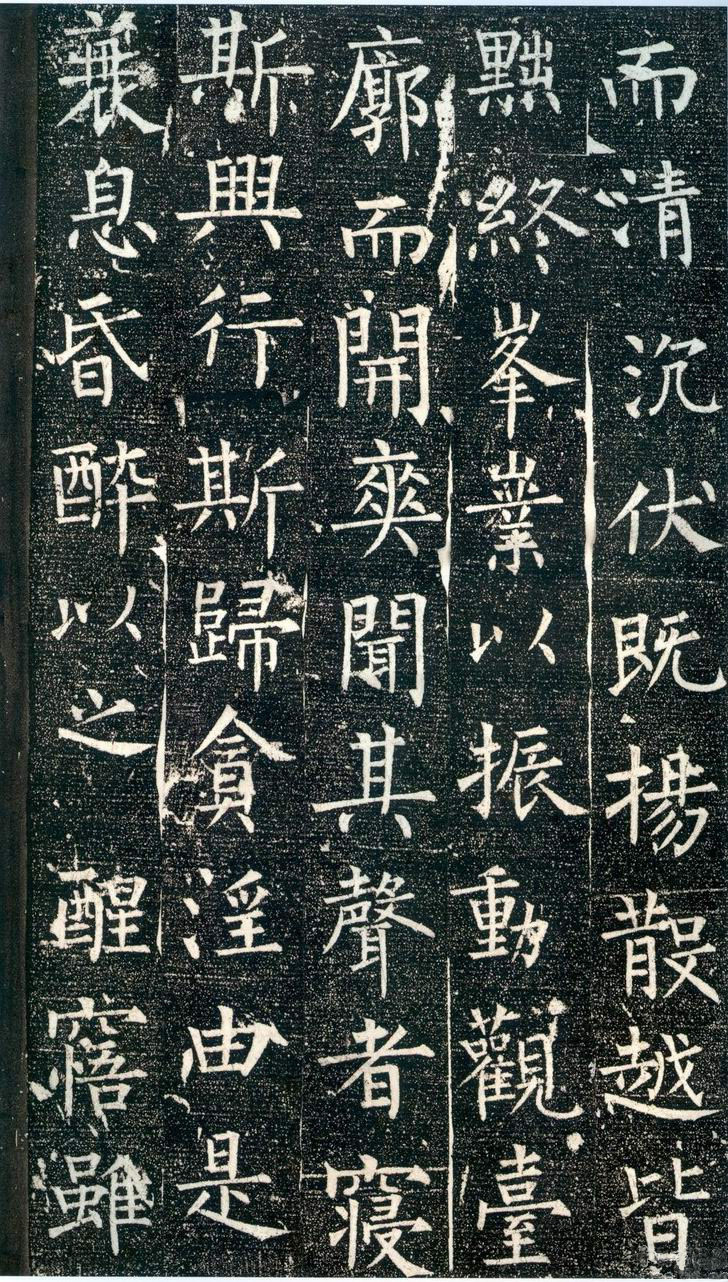 而清沉伏既揚散越皆
黜終峯嶪以振動觀臺
廓而開爽聞其聲者寢
斯興行斯歸貪淫由是
衰息昏醉以之醒寤雖